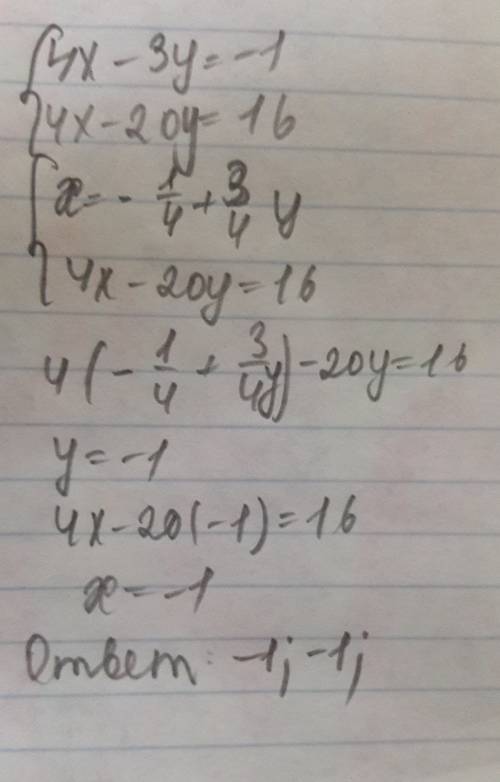 4x - 3y = -1
4x - 20y = 16
x = - 1/4 + 3/4 y
4x - 20y = 16
4(- 1/4 + 3/4y) - 20y = 16
y = -1
4x - 20(-1) = 16
x = -1
Ответ: -1; -1;